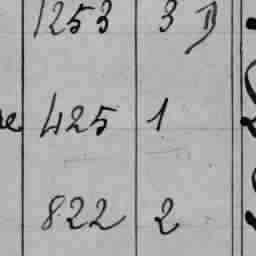 1253 3 D
425 1
822 2